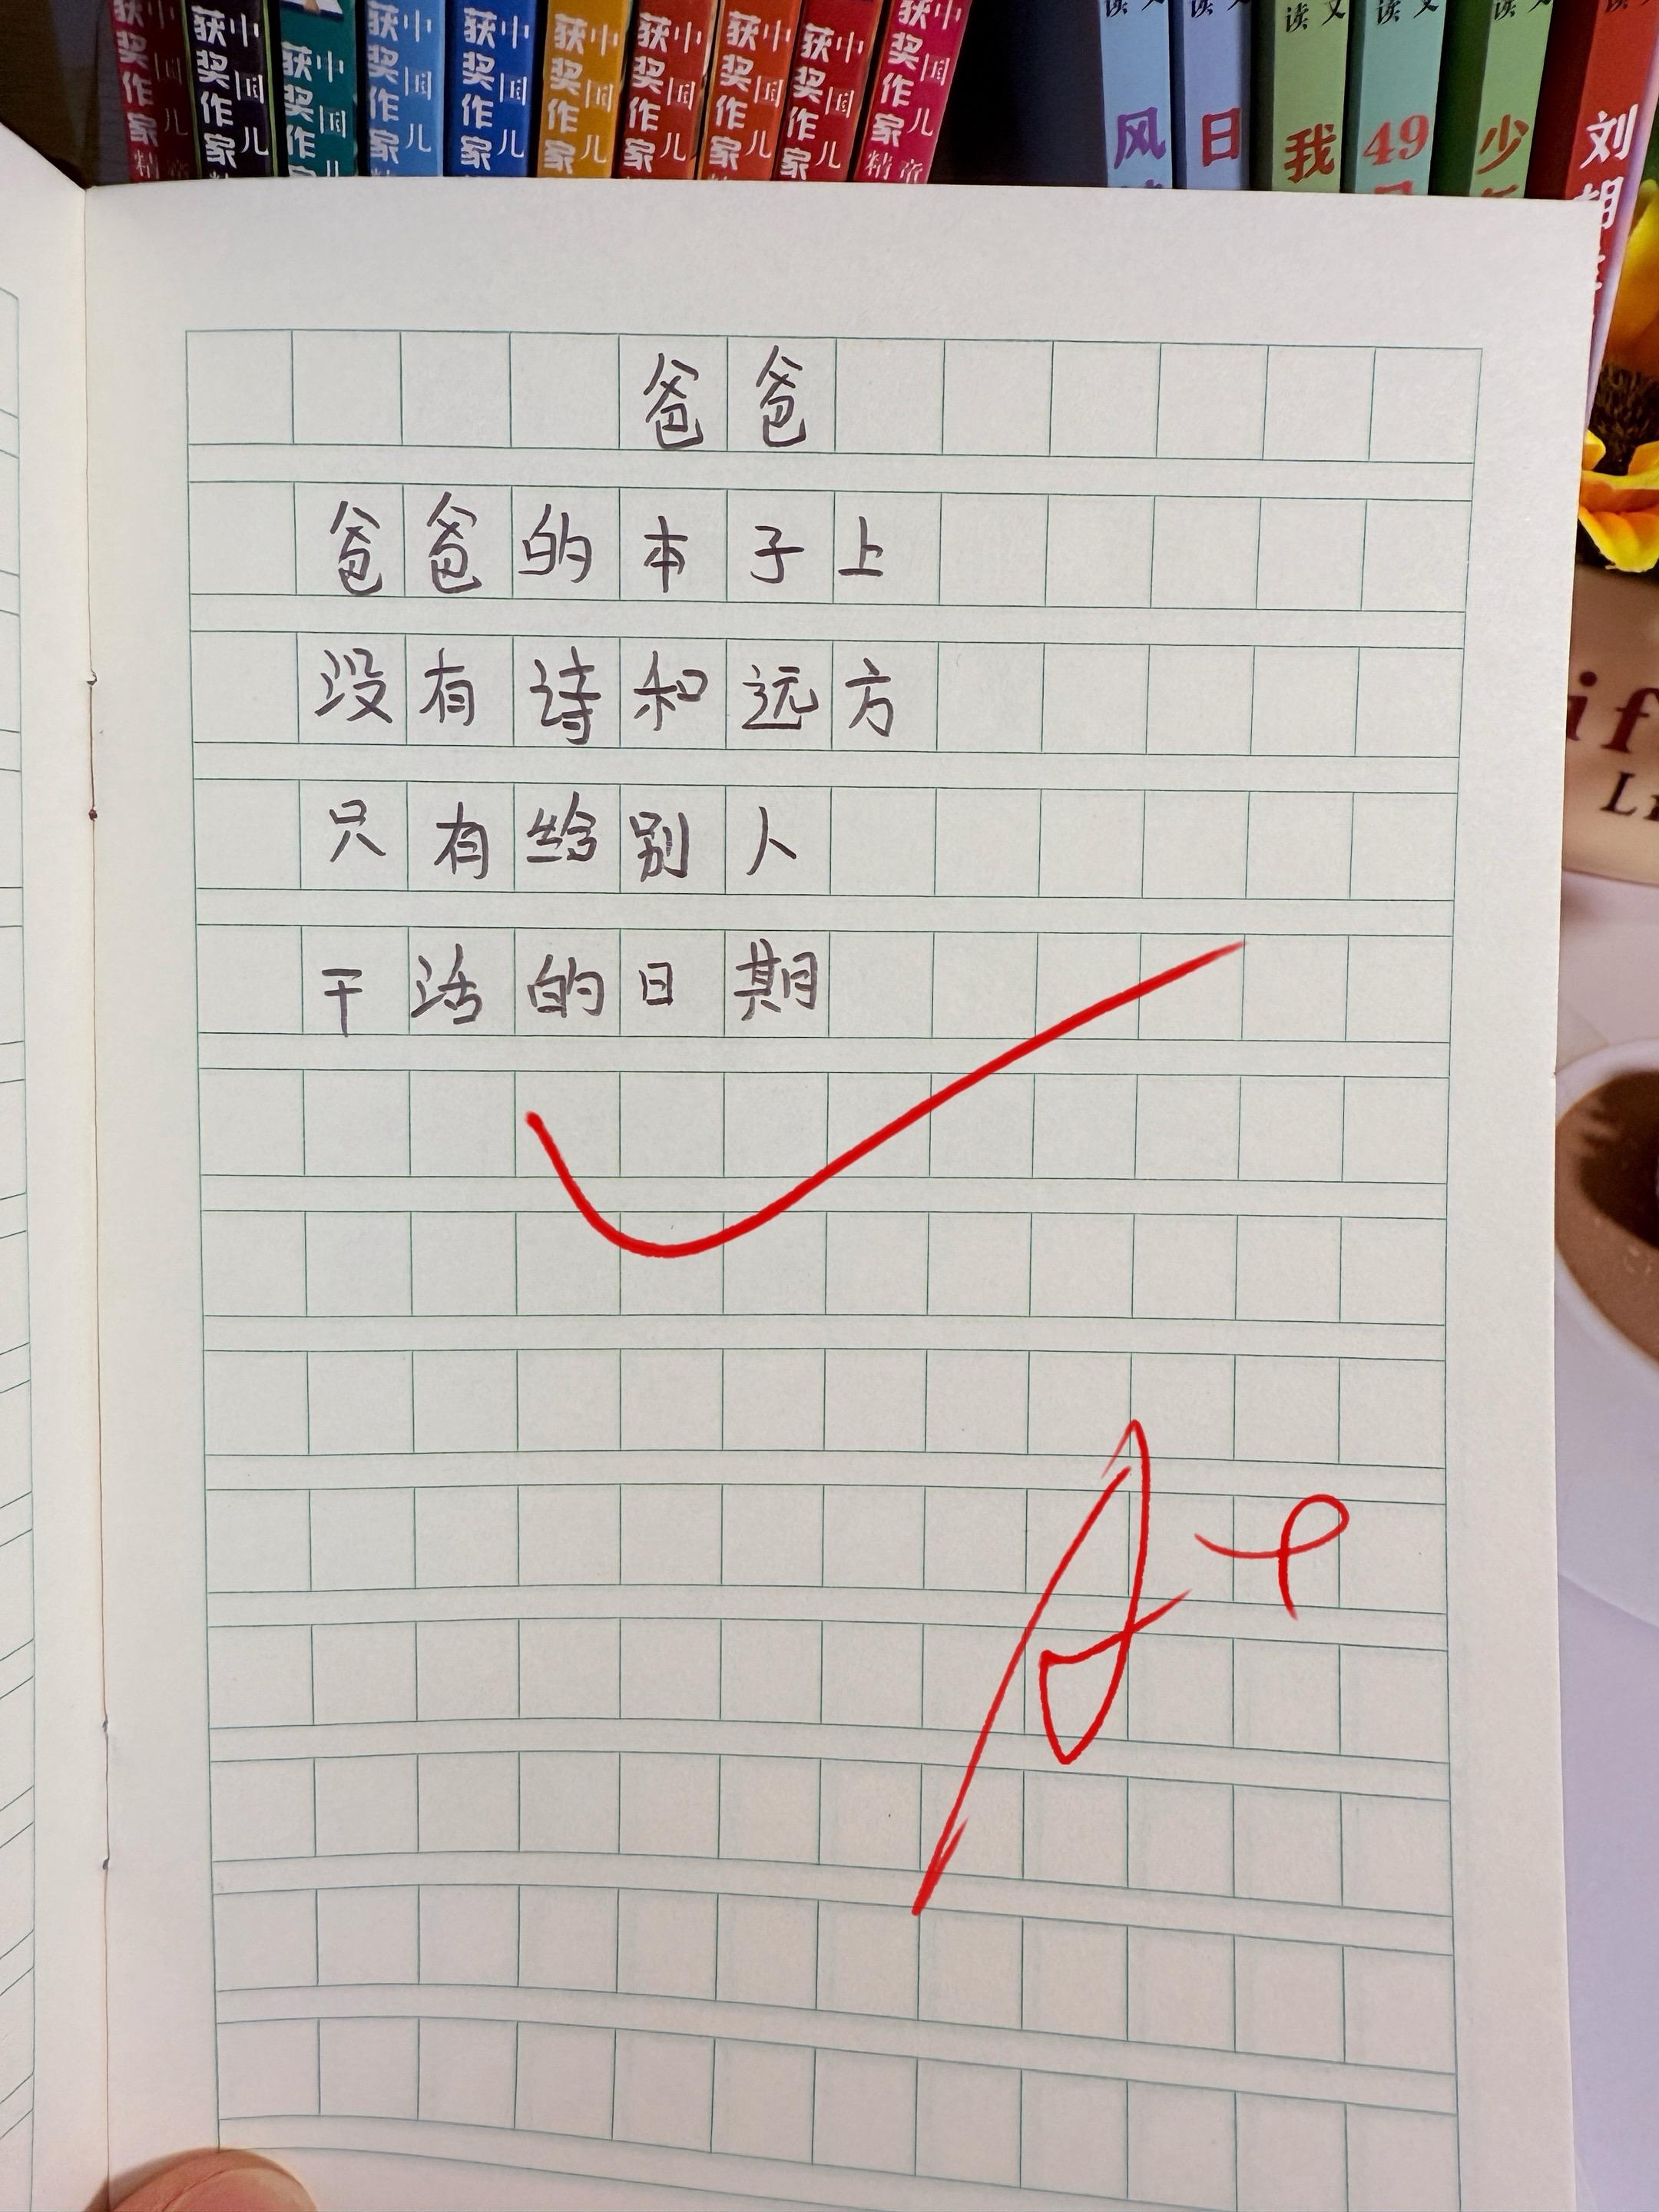 中国儿
获奖作家
精
中国儿
获奖作家
中国儿
获奖作家
中国儿
获奖作家
中国儿
获奖作家
中国儿
获奖作家
中国儿
获奖作家
中国儿
获奖作家
中国儿
获奖作家
中国儿
获奖作家
精
风
日
我
49
少
刘胡
爸爸
爸爸的本子上
没有诗和远方
只有给别人
干活的日期
A+